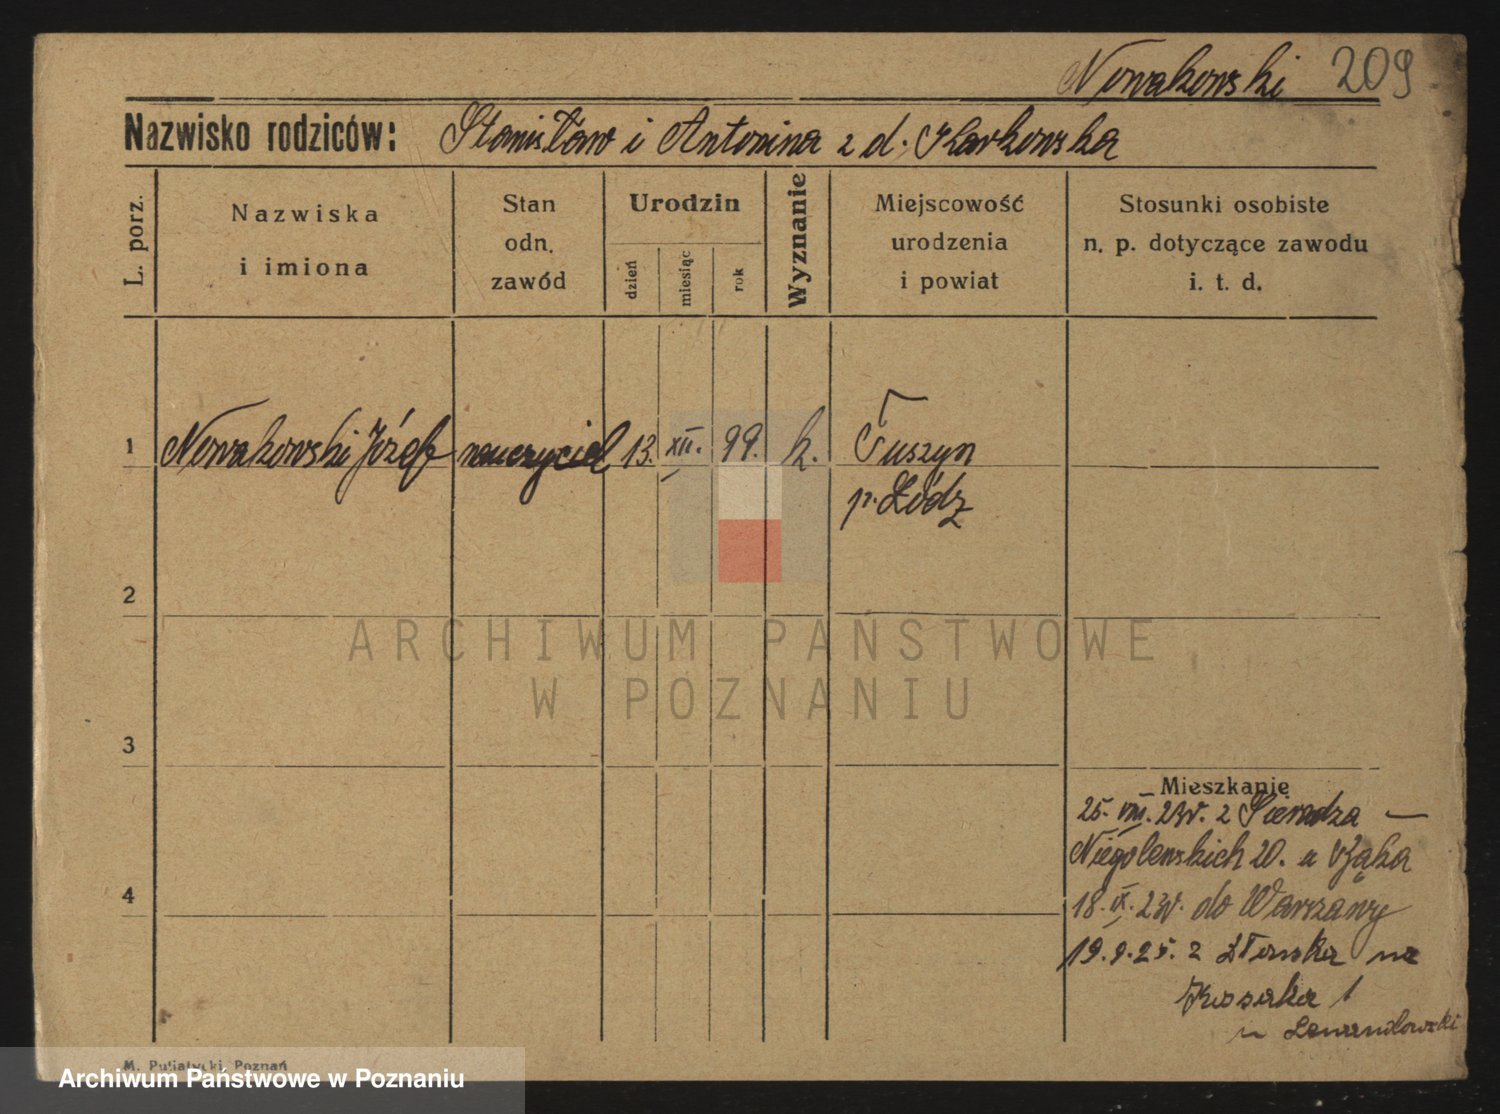 Nowakowski 209
Nazwisko rodziców: Stanisław i Antonina z d. Karkowska
L. porz.
Nazwiska
i imiona
Stan
odn.
zawód
Urodzin
dzień
miesiąc
rok
Wyznanie
Miejscowość
urodzenia
i powiat
Stosunki osobiste
n. p. dotyczące zawodu
i. t. d.
1 Nowakowski Józef nauczyciel 13. XII. 99. k. Tuszyn
p. Łódz
2
ARCHIWUM PAŃSTWOWE
W POZNANIU
3
Mieszkanie
25. VIII. 23r. z Sieradza —
Niegolewskich 20. u
4
18. IX. 23r. do Warszawy
19.9.25. z na
Kossaka 1
u Lewandowski
M. Putiatycki, Poznań
Archiwum Państwowe w Poznaniu